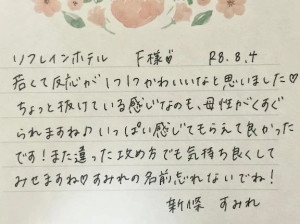 リフレインホテル　F様♡　R8.8.4
若くて反応が1つ1つかわいいなと思いました♡
ちょっと抜けている感じなのも、母性がくすぐ
られますね♪いっぱい感じてもらえて良かった
です!また違った攻め方でも気持ち良くして
みせますね♡すみれの名前忘れないでね!
新條　すみれ